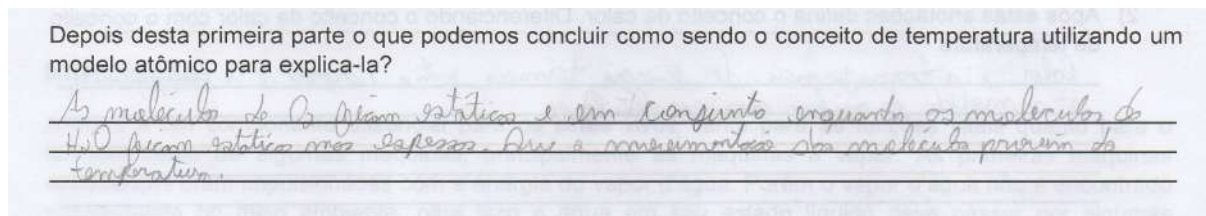 Depois desta primeira parte o que podemos concluir como sendo o conceito de temperatura utilizando um
modelo atômico para explica-la?
As moleculas de O₂ ficam estáticas e em conjunto enquanto as moleculas de
H₂O ficam estáticas mas espessas. Que a movimentação das moleculas provem da
temperatura.